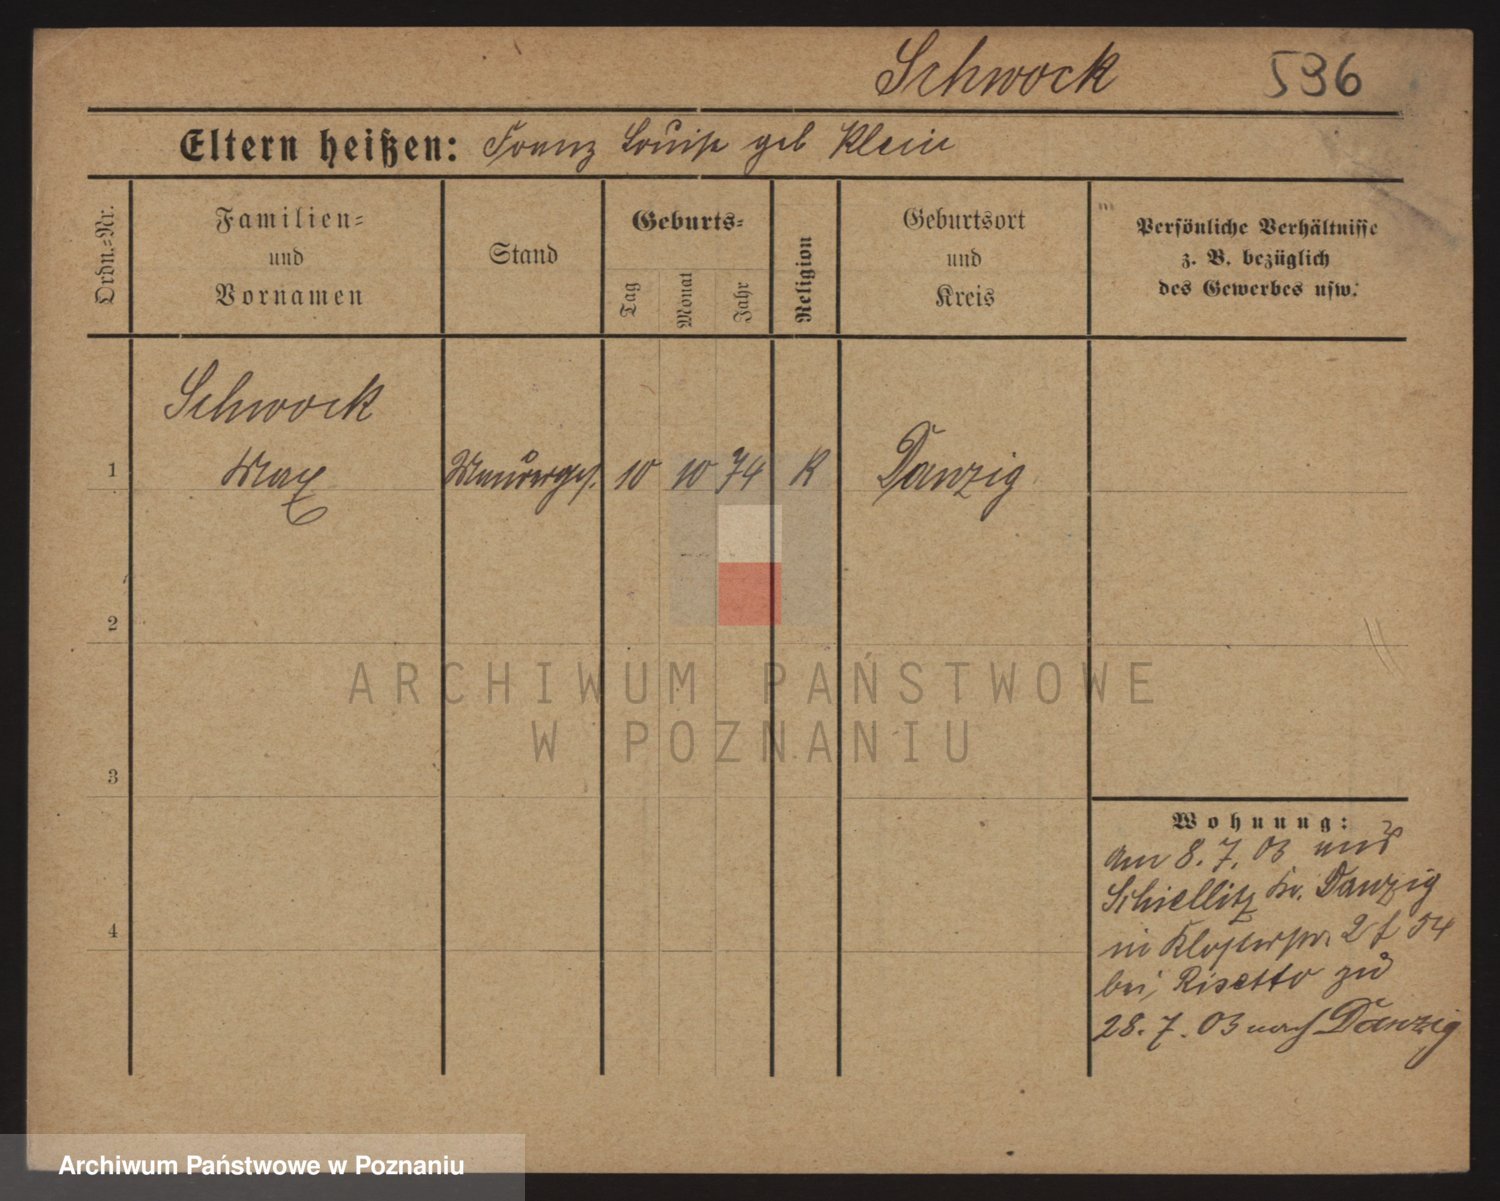 Schwock 536
Eltern heißen: Franz Louise geb Klein
Ordn.=Nr.
Familien=
und
Vornamen
Stand
Geburts=
Tag
Monat
Jahr
Religion
Geburtsort
und
Kreis
Persönliche Verhältnisse
z. B. bezüglich
des Gewerbes usw.
Schwock
1 Max Maurerges. 10 10 74 K Danzig
2
ARCHIWUM PAŃSTWOWE
W POZNANIU
3
Wohnung:
am 8. 7. 03 aus
Schiellitz Kr. Danzig
in Klosterstr. 2 f 54
bei Risetto zu
4
28. 7. 03 nach Danzig
Archiwum Państwowe w Poznaniu